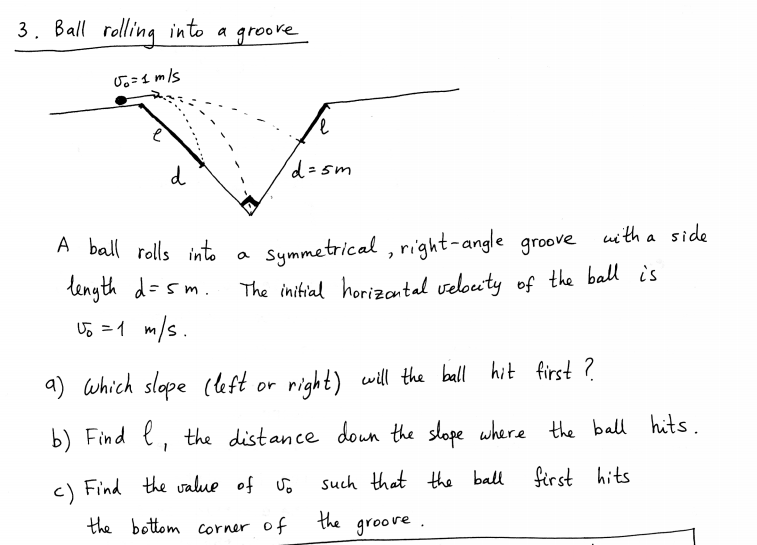 3. Ball rolling into a groove
v₀=1 m/s
l
l
d
d=5m
A ball rolls into a symmetrical, right-angle groove with a side
length d=5 m. The initial horizontal velocity of the ball is
v₀ =1 m/s.
a) Which slope (left or right) will the ball hit first?
b) Find l, the distance down the slope where the ball hits.
c) Find the value of v₀ such that the ball first hits
the bottom corner of the groove.